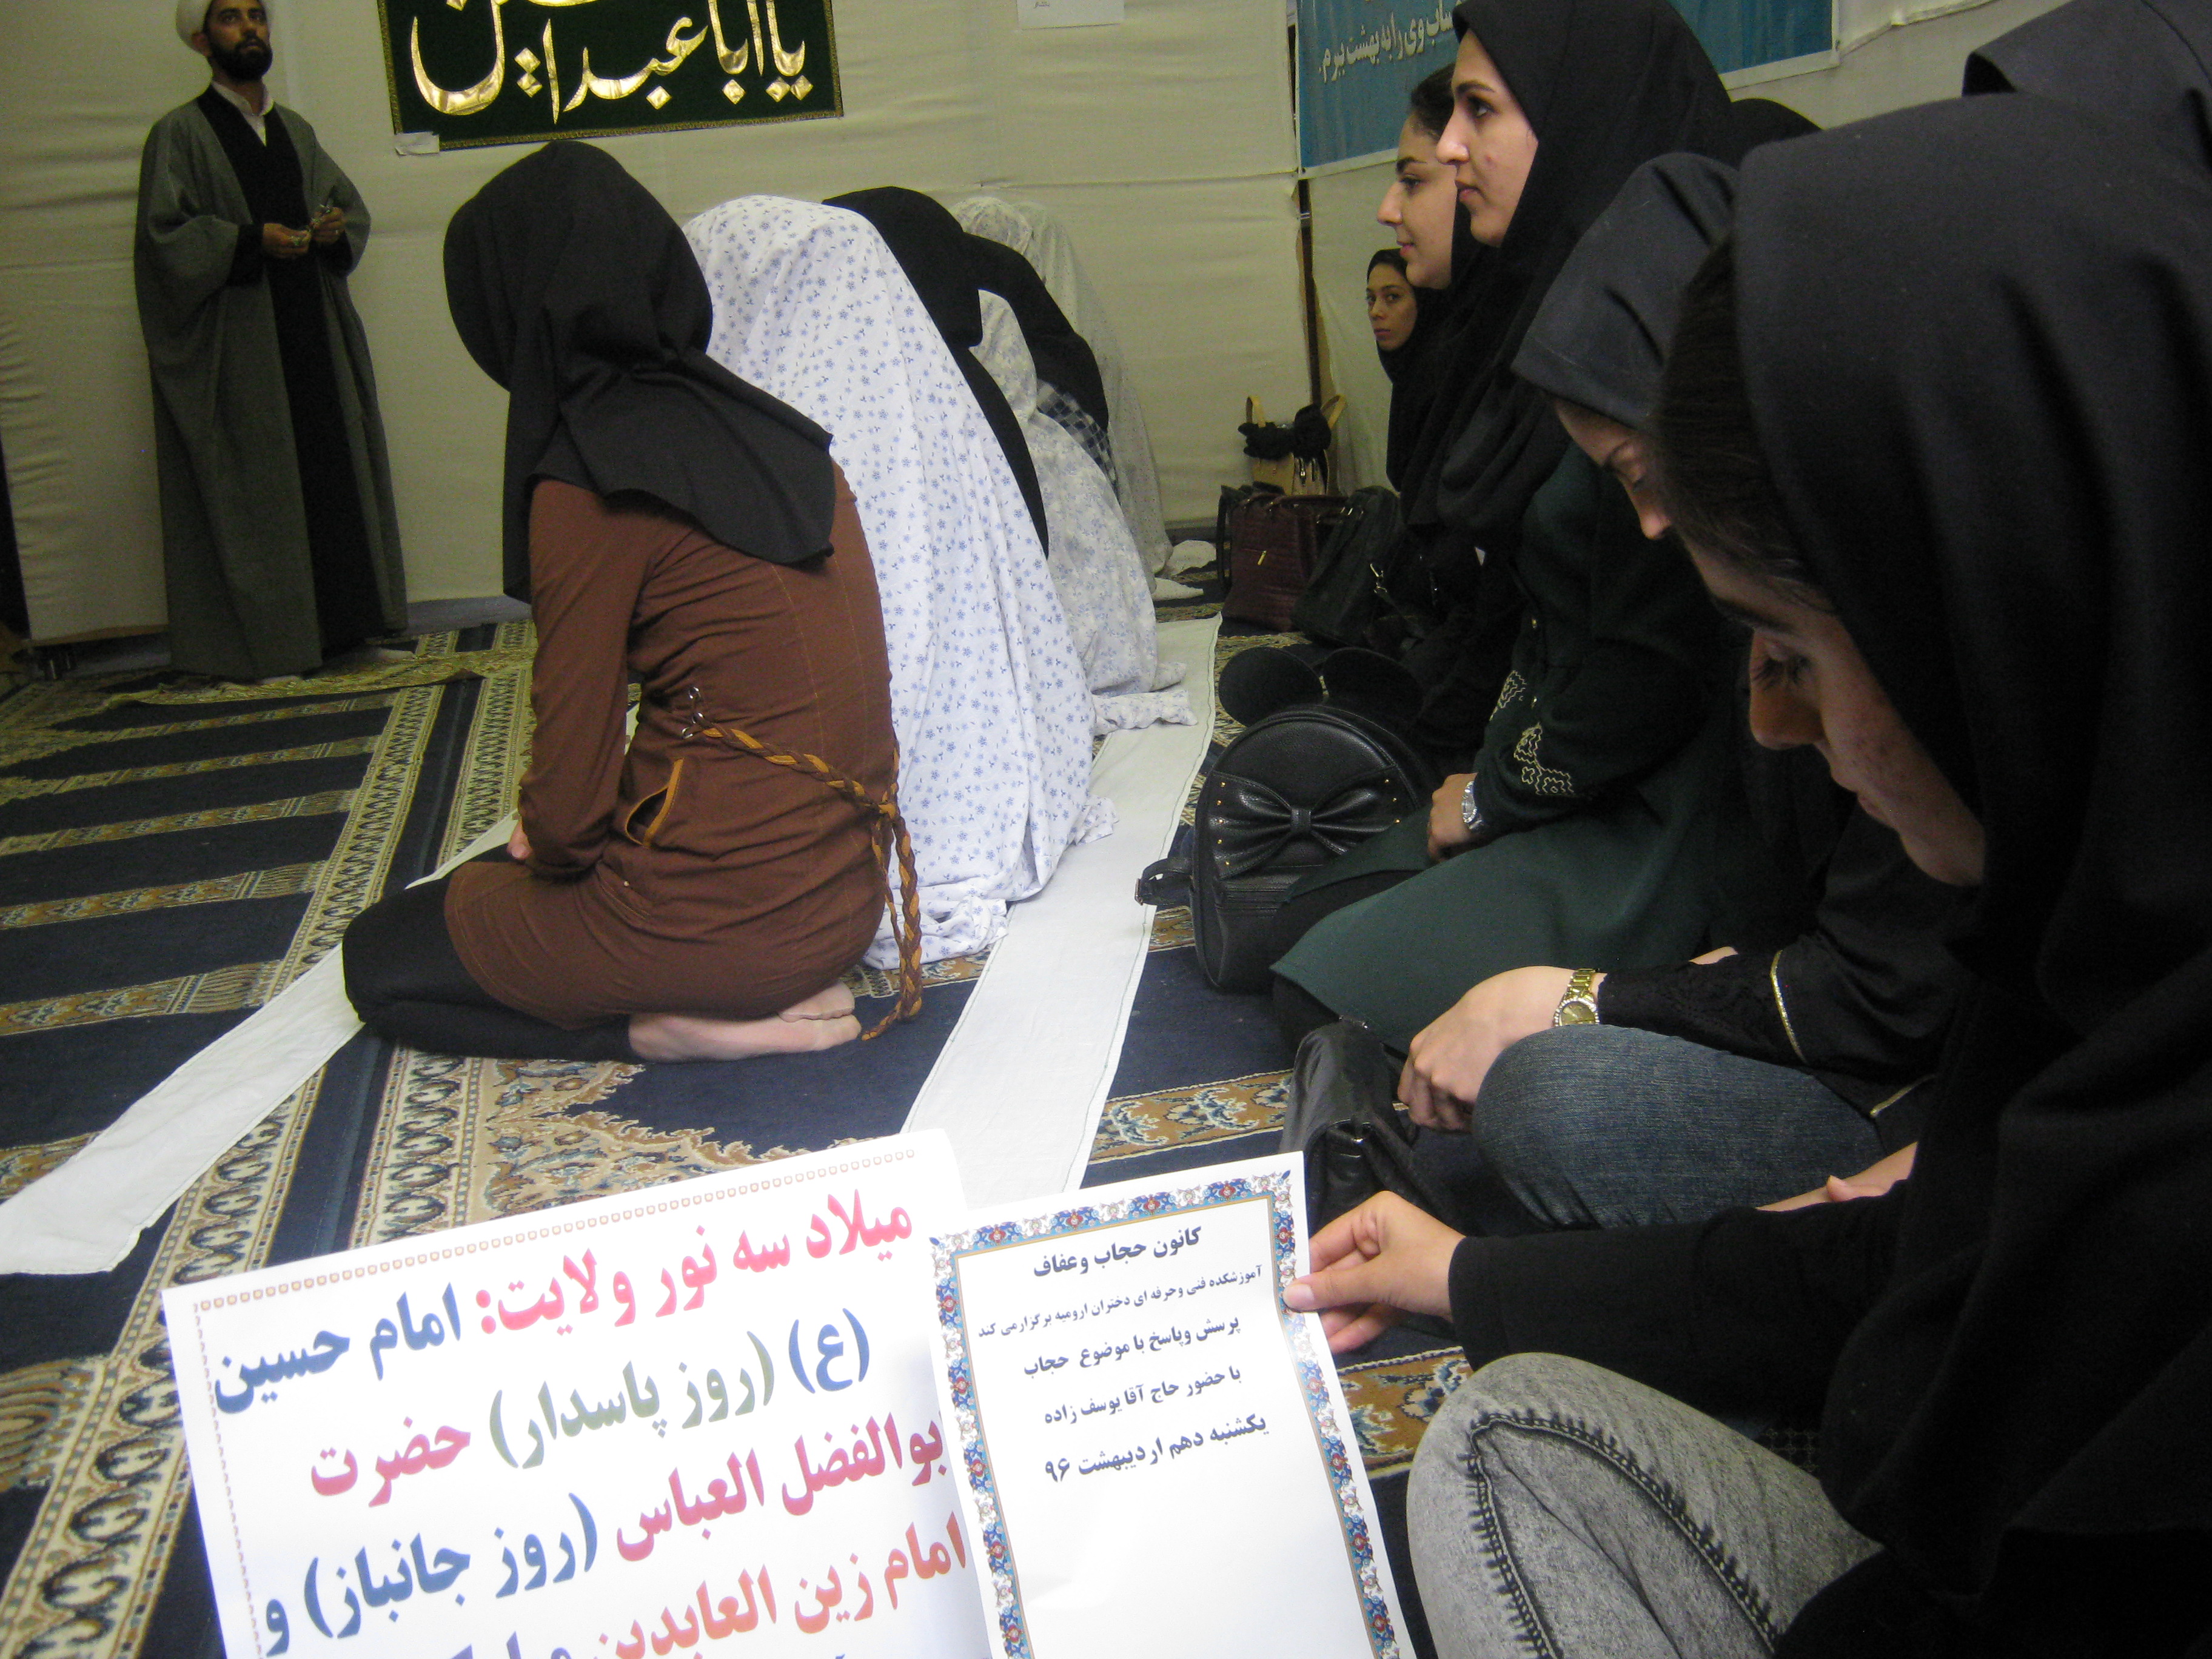 یا ابا عبدا
ساب وی را به بهشت برم.
میلاد سه نور ولایت: امام حسین
(ع) (روز پاسدار) حضرت
بوالفضل العباس (روز جانباز) و
امام زین العابدین
کانون حجاب وعفاف
آموزشکده فنی وحرفه ای دختران ارومیه برگزارمی کند
پرسش وپاسخ با موضوع حجاب
با حضور حاج آقا یوسف زاده
یکشنبه دهم اردیبهشت ۹۶